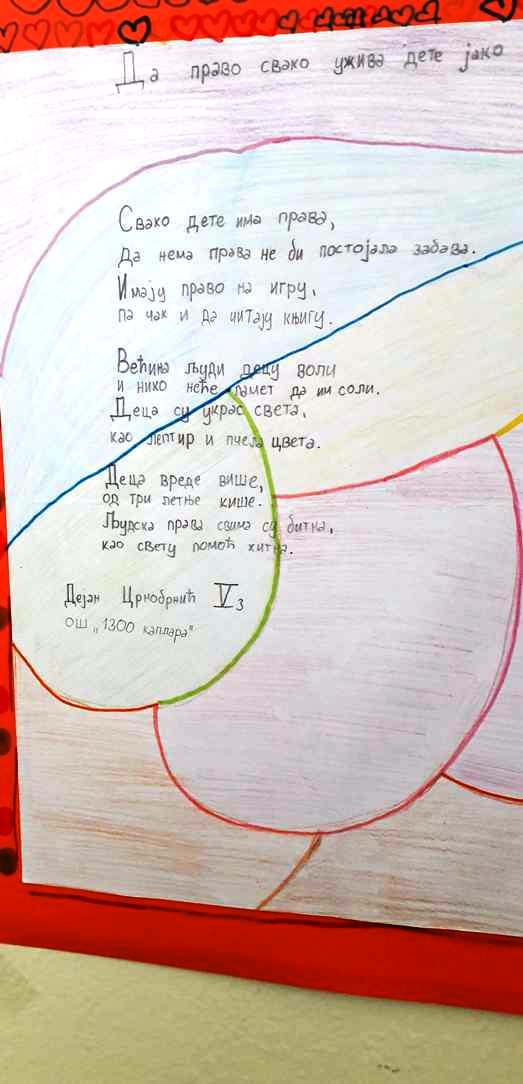 Да право свако ужива дете јако
Свако дете има права,
Да нема права не би постојала забава.
Имају право на игру,
па чак и да читају књигу.
Већина људи децу воли
и нико неће памет да им соли.
Деца су украс света,
као лептир и пчела цвета.
Деца вреде више,
од три летње кише.
Људска права свима су битна,
као свету помоћ хитна.
Дејан Црнобрнић V3
ОШ „1300 каплара"